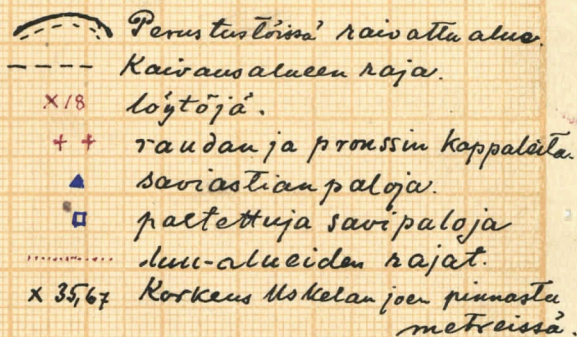 Perustustöissä raivattu alue.
Kaivausalueen raja.
x 18 löytöjä.
+ + raudan ja pronssin kappaleita.
saviastian paloja.
poltettuja savipaloja
luu-alueiden rajat.
x 35,67 Korkeus Uskelan joen pinnasta
metreissä.